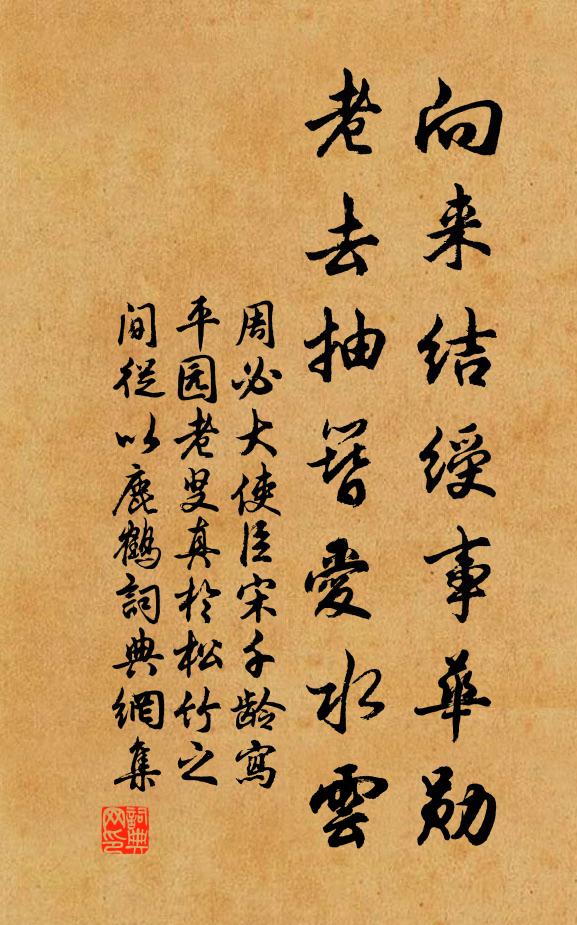 向来结绶事华勋
老去抽簪爱水云
周必大使臣宋千龄写
平园老叟真于松竹之
间从以鹿鹤词典网集
词典
网印